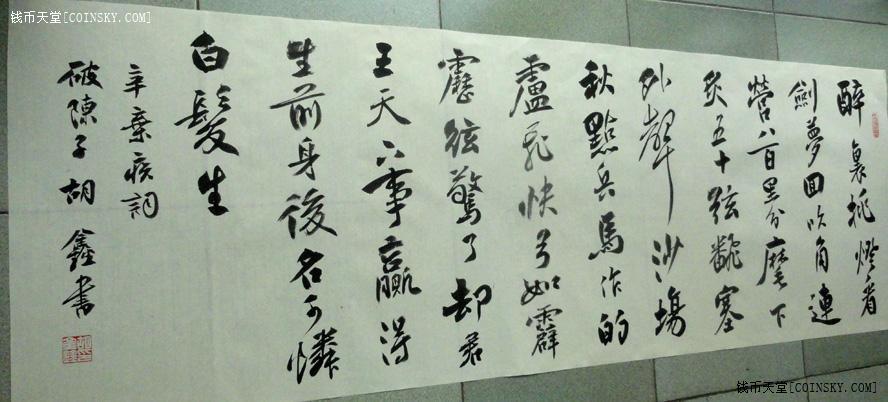 醉裏挑燈看
劍夢回吹角連
營八百里分麾下
炙五十弦翻塞
外聲沙場
秋點兵馬作的
盧飛快弓如霹
靂弦驚了却君
王天下事贏得
生前身後名可憐
白髮生
辛棄疾詞
破陳子胡鑫書
钱币天堂[COINSKY.COM]
钱币天堂[COINSKY.COM]